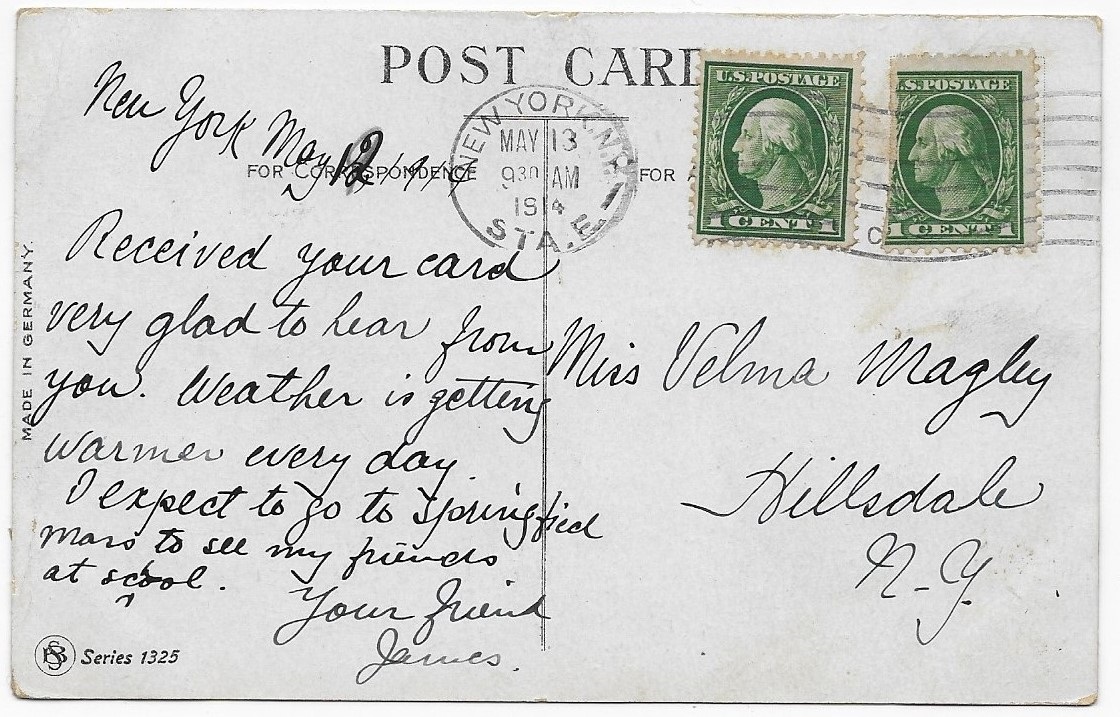 POST CARD
New York May 12 1914
FOR CORRESPONDENCE
FOR A
NEW YORK, N.Y.
MAY 13
930 AM
1914
STA. E.
U.S. POSTAGE
1 CENT 1
U.S. POSTAGE
1 CENT 1
MADE IN GERMANY.
Received your card
very glad to hear from
you. Weather is getting
warmer every day
I expect to go to Springfied
Mass to see my friends
at school.
Your friend
James.
Miss Velma Magley
Hillsdale
N-Y.
PSB Series 1325